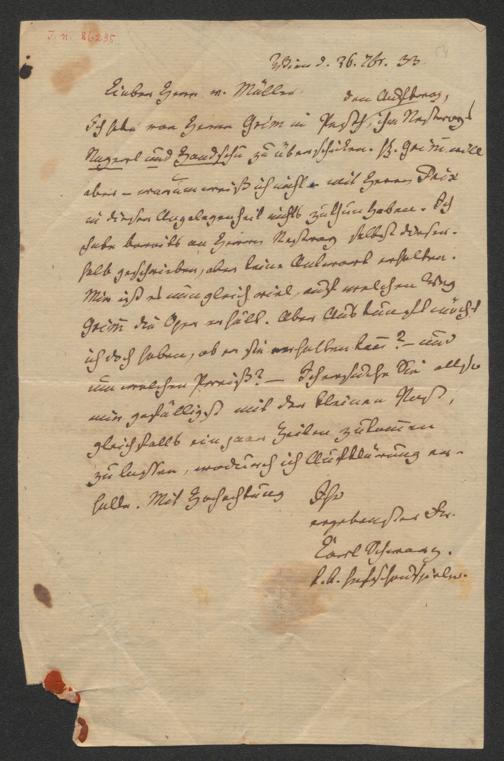 I. N. 86235
54
Wien d. 26. 7br. 33.
Lieber Herr v. Müller
den Auftrag,
Ich habe von Herrn Grim in Pesth, ihm Nestroys
Nagerl und Handschu zu überschicken. H. Grim̅ will
aber – warum weiß ich nicht – mit Herrn Prix
in dieser Angelegenheit nichts zu thun haben. Ich
habe bereits an Herrn Nestroy selbst dieser-
halb geschrieben, aber keine Antwort erhalten.
Mir ist es nun gleich viel, auf welchen Weg
Grim̅ die Oper erhält. Aber Auskunft möcht
ich doch haben, ob er sie erhalten kan̅? – und
um welchen Preiß? – Ich ersuche Sie also
mir gefälligst mit der kleinen Post,
gleichfalls ein paar Zeilen zukom̅en
zu lassen, wodurch ich Aufklärung er-
halte. Mit Hochachtung
Ihr
ergebenster Dr.
Carl Schwarz.
k. k. Hofschauspieler.